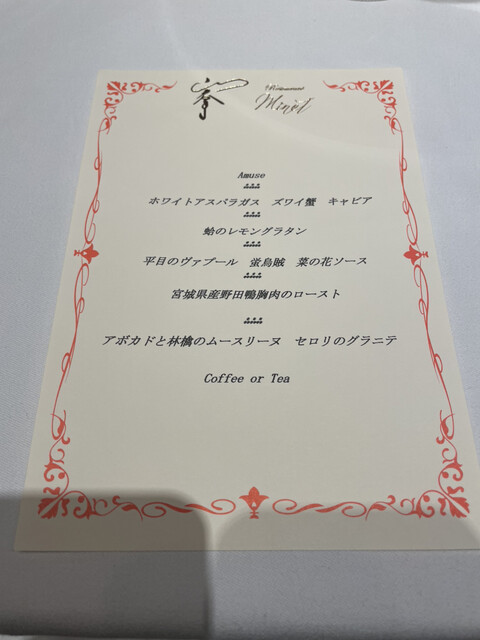 峯
Restaurant
Minet
Amuse
ホワイトアスパラガス　ズワイ蟹　キャビア
蛤のレモングラタン
平目のヴァプール　蛍烏賊　菜の花ソース
宮城県産野田鴨胸肉のロースト
アボカドと林檎のムースリーヌ　セロリのグラニテ
Coffee or Tea